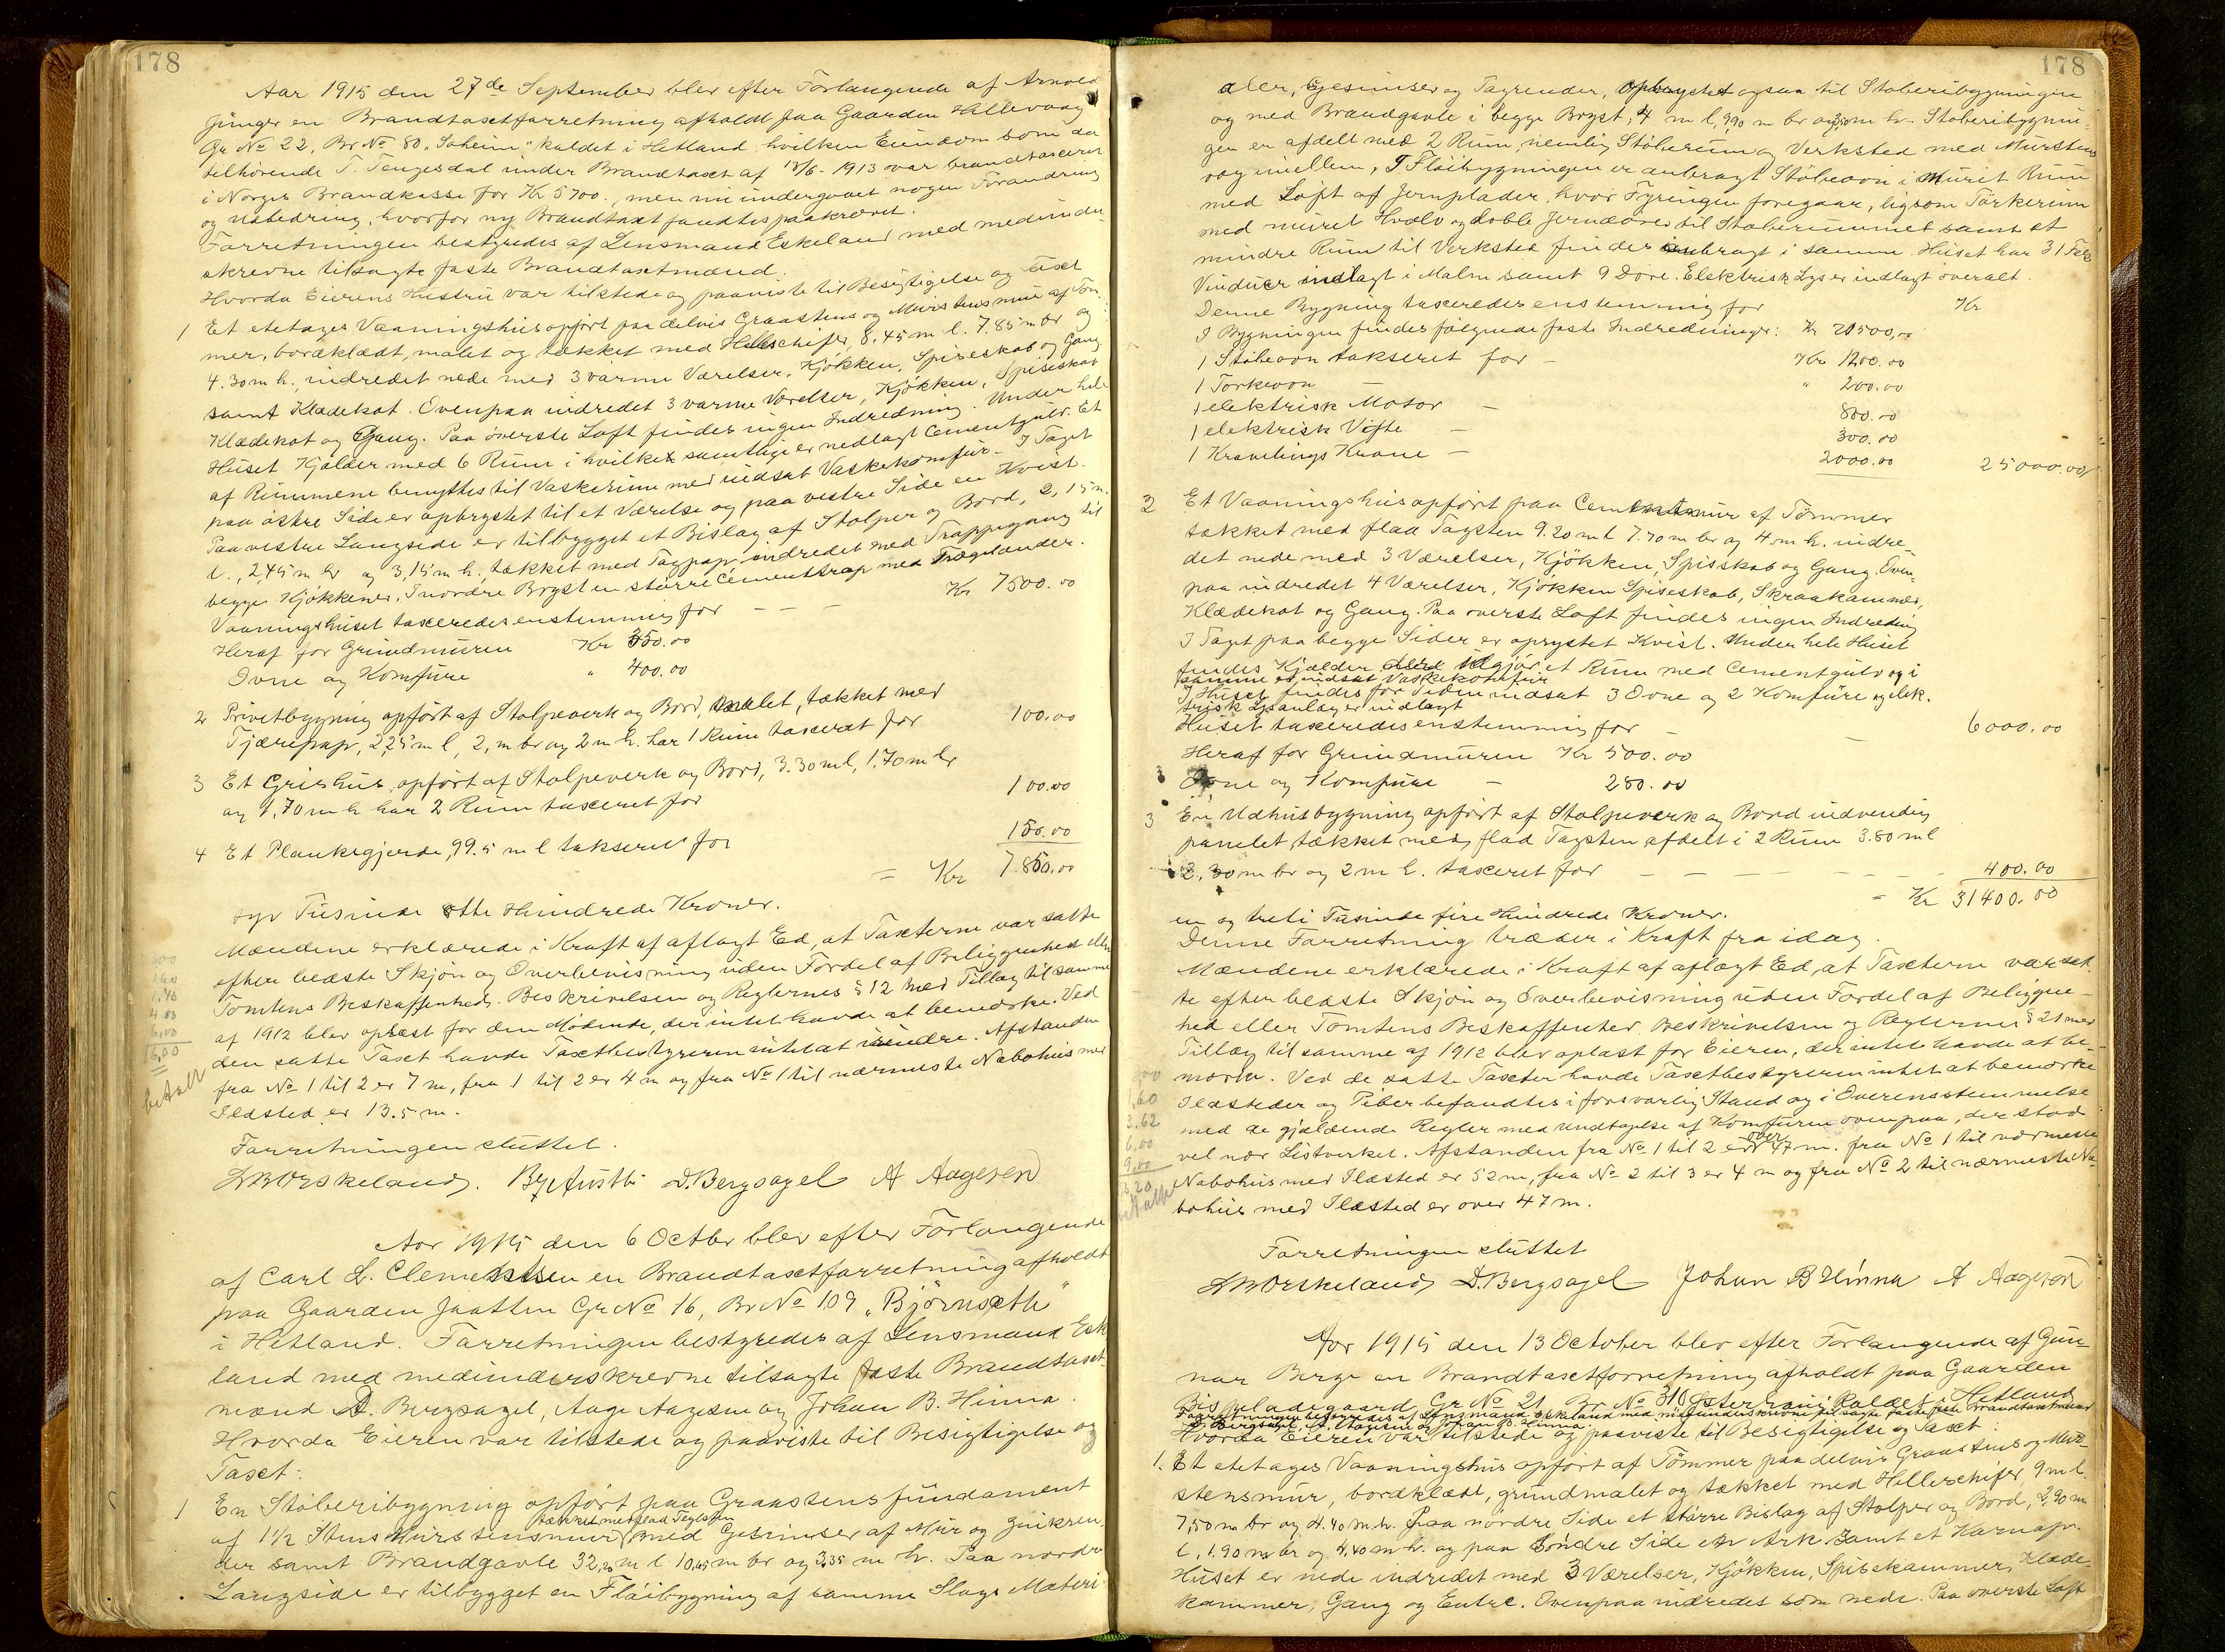 178
Aar 1915 den 27de September blev efter Forlangende af Arnold
Junger en Brandtaxtforretning afholdt paa Gaarden Hillevaag
Gr No 22, Br No 80 "Soheim" kaldet i Hetland, hvilken Eiendom som da
tilhørende T. Tengesdal under Brandtaxt af 18/6-1913 var brandtaxeret
i Norges Brandkasse for Kr 5700., men nu undergaaet nogen Forandring
og Udbedring, hvorfor ny Brandtaxt fandtes paakrævet.
Forretningen bestyredes af Lensmand Eskeland med medunder
skrevne tilsagte faste Brandtaxtmænd.
Hvorda Eierens Hustru var tilstede og paaviste til Besigtigelse og Taxt
1 Et etetages Vaaningshus opført paa delvis Graastens og Murstensmur af Tøm-
mer, bordklædt, malet og tækket med Helleschifer, 8.45 m l. 7.85 m br og
4.30 m h. indredet nede med 3 varme Værelser, Kjøkken, Spiseskab og Gang
samt Klædekot. Ovenpaa indredet 3 varme Værelser, Kjøkken, Spiseskab
Klædekot og Gang. Paa øverste Loft findes ingen Indredning. Under hele
Huset Kjælder med 6 Rum i hvilket samtlige er nedlagt Cementgulv. Et
af Rummene benyttes til Vaskerum med indsat Vaskekomfur. I Taget
paa østre Side er opbrystet til et Værelse og paa vestre Side en Kvist.
Paa vestre Langside er tilbygget et Bislag af Stolper og Bord, 2,15 m.
l., 2,45 m br og 3,15 m h., tækket med Tagpap, indredet med Trappegang til
begge Kjøkkener. I nordre Bryst en større Cementtrap med Trægelænder.
Vaaningshuset taxeredes enstemmig for - - - Kr 7500.00
Heraf for Grundmuren Kr 350.00
Ovne og Komfure " 400.00
2 Privetbygning opført af Stolpeverk og Bord, malet, tækket med
Tjærepap, 2,25 m l, 2, m br og 2 m h. har 1 Rum taxeret for 100.00
3 Et Grishus, opført af Stolpeverk og Bord, 3.30 m l, 1.70 m br
og 1,70 m h har 2 Rum taxeret for 100.00
4 Et Plankegjerde, 99.5 m l takseret for 150.00
= Kr 7.850.00
syv Tusinde otte Hundrede Kroner.
Mændene erklærede i Kraft af aflagt Ed, at Taxterne var satte
efter bedste Skjøn og Overbevisning uden Fordel af Beliggenhed eller
Tomtens Beskaffenhed. Beskrivelsen og Reglernes § 12 med Tillæg til samme
af 1912 blev oplæst for den Mødende, der intet havde at bemærke. Ved
den satte Taxt havde Taxtbestyreren intet at erindre. Afstanden
fra No 1 til 2 er 7 m, fra 1 til 2 er 4 m og fra No 1 til nærmeste Nabohus med
Ildsted er 13.5 m.
betalt
Forretningen sluttet.
D. Bergsagel A Aagesen
Aar 1915 den 6 Octbr blev efter Forlangende
af Carl L. Clementsen en Brandtaxtforretning afholdt
paa Gaarden Jaatten Gr No 16, Br No 109 "Bjørnsæth"
i Hetland. Forretningen bestyredes af Lensmand Eske
land med medunderskrevne tilsagte faste Brandtaxt-
mænd D. Bergsagel, Aage Aagesen og Johan B. Hinna.
Hvorda Eieren var tilstede og paaviste til Besigtigelse og
Taxt:
1 En Støberibygning opført paa Graastens fundament
af 1½ Stens Murstensmur tækket med flad Teglsten med Gesimser af Mur og Zinkren-
der samt Brandgavle 32,20 m l 10,45 m br og 3,35 m h. Paa nordre
Langside er tilbygget en Fløibygning af samme Slags Materi-
178
aler, Gesimser og Tagrender, opbrystet ogsaa til Støberibygningen
og med Brandgavle i begge Bryst, 4 m l, 9,90 m br og 3,50 m h. Støberibygnin-
gen er afdelt med 2 Rum, nemlig Støberum og Verksted med Murstens
væg imellem, I Fløibygningen er anbragt Støbeovn i Muret Rum
med Loft af Jernplader, hvor Fyringen foregaar, ligsom Tørkerum
med muret Hvælv og doble Jerndøre til Støberummet samt et
mindre Rum til Verksted findes anbragt i samme. Huset har 31 Fags
Vinduer indlagt i Malm samt 9 Døre. Elektrisk Lys er indlagt overalt.
Denne Bygning taxeredes enstemmig for Kr
I Bygningen findes følgende faste Indredninger: Kr 20500,00
1 Støbeovn takseret for - Kr 1200.00
1 Tørkeovn - " 200.00
1 elektrisk Motor - 800.00
1 elektrisk Vifte - 300.00
1 Kravelings Krane - 2000.00 25000.00
2 Et Vaaningshus opført paa Cementmur af Tømmer
tækket med flad Tagsten 9.20 m l 7.70 m br og 4 m h. indre-
det nede med 3 Værelser, Kjøkken, Spisskab og Gang. Oven-
paa indredet 4 Værelser, Kjøkken Spiseskab, Skraakammer,
Klædekot og Gang. Paa øverste Loft findes ingen Indredning
I Taget paa begge Sider er oprystet Kvist. Under hele Huset
findes Kjælder der udgjør et Rum med Cementgulv og i
samme er indsat Vaskekomfur
I Huset findes for Tiden indsat 3 Ovne og 2 Komfure og elek-
trisk Lysanlæg er indlagt
Huset taxeredes enstemmig for - - 6000.00
Heraf for Grundmuren Kr 500.00
Ovne og Komfure - 280.00
3 En Udhusbygning opført af Stolpeverk og Bord indvendig
panelet, tækket med flad Tagsten, afdelt i 2 Rum 3.80 m l
2,30 m br og 2 m h. taxeret for - - - 400.00
= Kr 31400.00
en og treti Tusinde fire Hundrede Kroner.
Denne Forretning træder i Kraft fra idag.
Mændene erklærede i Kraft af aflagt Ed, at Taxterne var sat-
te efter bedste Skjøn og Overbevisning uden Fordel af Beliggen-
hed eller Tomtens Beskaffenhed. Beskrivelsen og Reglernes § 21 med
Tillæg til samme af 1912 blev oplæst for Eieren, der intet havde at be-
mærke. Ved de satte Taxter havde Taxtbestyreren intet at bemærke
Ildsteder og Piber befandtes i forsvarlig Stand og i Overensstemmelse
med de gjældende Regler med Undtagelse af Komfuren ovenpaa, der stod
vel nær Listverket. Afstanden fra No 1 til 2 er over 47 m. fra No 1 til nærmeste
Nabohus med Ildsted er 52 m, fra No 2 til 3 er 4 m og fra No 2 til nærmeste Na-
bohus med Ildsted er over 47 m.
betalt
Forretningen sluttet
D. Bergsagel Johan B Hinna A Aagesen
Aar 1915 den 13 October blev efter Forlangende af Gun-
nar Berge en Brandtaxtforretning afholdt paa Gaarden
Bispeladegaard Gr No 21 Br No 310 kaldet i Hetland
Forretningen bestyredes af Lensmand Eskeland med medunderskrevne tilsagte faste Brandtaxtmænd
D. Bergsagel, A. Aagesen og Johan B. Hinna.
Hvorda Eieren var tilstede og paaviste til Besigtigelse og Taxt:
1. Et etetages Vaaningshus opført af Tømmer paa delvis Graastens og Mur-
stensmur, bordklædt, grundmalet og tækket med Hellerchifer, 9 m l.
7,50 m br og 4.40 m h. Paa nordre Side et større Bislag af Stolper og Bord, 2,90 m
l, 1.90 m br og 4,40 m h. og paa Søndre Side en Ark samt et Karnap.
Huset er nede indredet med 3 Værelser, Kjøkken, Spisekammer, Klæde-
kammer, Gang og Entre. Ovenpaa indredet som nede. Paa øverste Loft